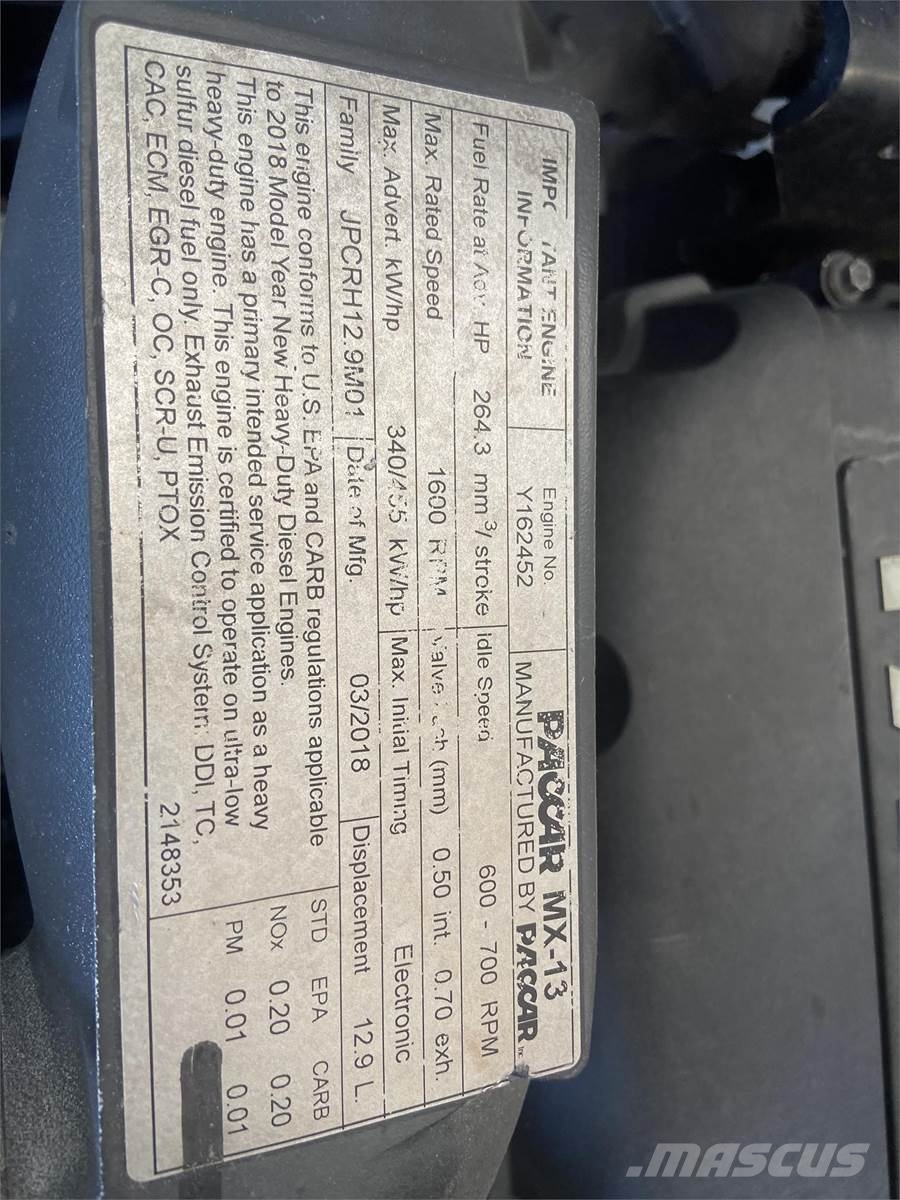 IMPORTANT ENGINE INFORMATION
Engine No. Y162452
PACCAR MX-13
MANUFACTURED BY PACCAR Inc
Fuel Rate at Adv. HP 264.3 mm³/ stroke Idle Speed 600 - 700 RPM
Max. Rated Speed 1600 RPM Valve Lash (mm) 0.50 int. 0.70 exh.
Max. Advert. kW/hp 340/455 kW/hp Max. Initial Timing Electronic
Family JPCRH12.9M01 Date of Mfg. 03/2018 Displacement 12.9 L.
This engine conforms to U.S. EPA and CARB regulations applicable
to 2018 Model Year New Heavy-Duty Diesel Engines.
This engine has a primary intended service application as a heavy
heavy-duty engine. This engine is certified to operate on ultra-low
sulfur diesel fuel only. Exhaust Emission Control System: DDI, TC,
CAC, ECM, EGR-C, OC, SCR-U, PTOX 2148353
STD EPA CARB
NOx 0.20 0.20
PM 0.01 0.01
MASCUS